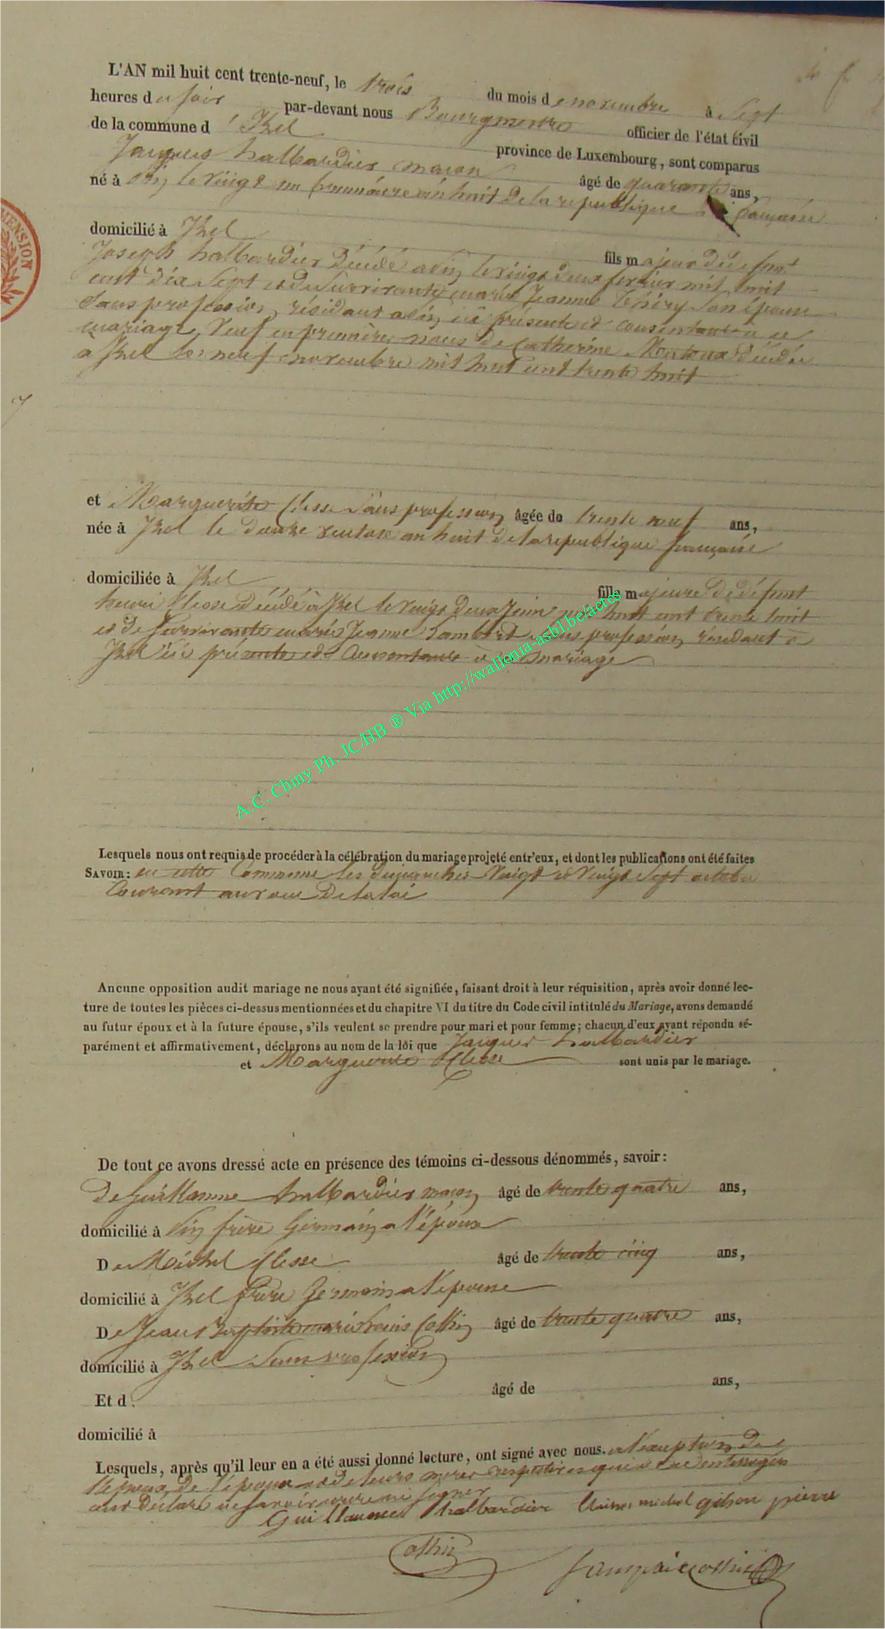 L'AN mil huit cent trente-neuf, le trois du mois de novembre à Sept
heures du soir par-devant nous Bourgmestre officier de l'état civil
de la commune d'Izel province de Luxembourg, sont comparus
Jacques halbardier maçon âgé de quarante ans,
né à le vingt un brumaire an huit de la republique française
domicilié à Izel fils majeur de defunt
Joseph halbardier décédé a le vingt deux fevrier mil huit
cent dix Sept et de Survivante marie Jeanne Son épouse
Sans profession, résidant a ici présente et consentante a ce
mariage, Veuf en première noces de Catherine décédée
a Izel le neuf novembre mil huit cent trente huit
et Marguerite Clesse Sans profession âgée de trente neuf ans,
née à Izel le douze ventose an huit de la republique française
domiciliée à Izel fille majeure de défunt
henri Clesse décédé à Izel le vingt deux Juin mil huit cent trente huit
et de Survivante marie Jeanne Lambert sans profession résidant a
Izel ici présente et Consentante a ce mariage
A.C. Chiny Ph. JC.HB ® Via http://wallonia-asbl.be/actes
Lesquels nous ont requis de procéder à la célébration du mariage projeté entr'eux, et dont les publications ont été faites
SAVOIR: en cette Commune les dimanches Vingt et Vingt Sept octobre
Courant au voeu de la loi
Aucune opposition audit mariage ne nous ayant été signifiée, faisant droit à leur réquisition, après avoir donné lec-
ture de toutes les pièces ci-dessus mentionnées et du chapitre VI du titre du Code civil intitulé du Mariage, avons demandé
au futur époux et à la future épouse, s'ils veulent se prendre pour mari et pour femme; chacun d'eux ayant répondu sé-
parément et affirmativement, déclarons au nom de la loi que Jacques halbardier
et Marguerite Clesse sont unis par le mariage.
De tout ce avons dressé acte en présence des témoins ci-dessous dénommés, savoir:
De Guillaume halbardier maçon âgé de trente quatre ans,
domicilié à frère Germain a l'époux
De Michel Clesse âgé de trente cinq ans,
domicilié à Izel frère Germain a l'épouse
De Jean Baptiste marie Louis Collin âgé de trente quatre ans,
domicilié à Izel Sans profession
Et d âgé de ans,
domicilié à
Lesquels, après qu'il leur en a été aussi donné lecture, ont signé avec nous. a l'exception de
l'époux, de l'épouse et de leurs meres respectives qui de ce interrogés
ont Déclaré ne Savoir écrire ni signer
Guillaume halbardier michel gilson pierre
Collin